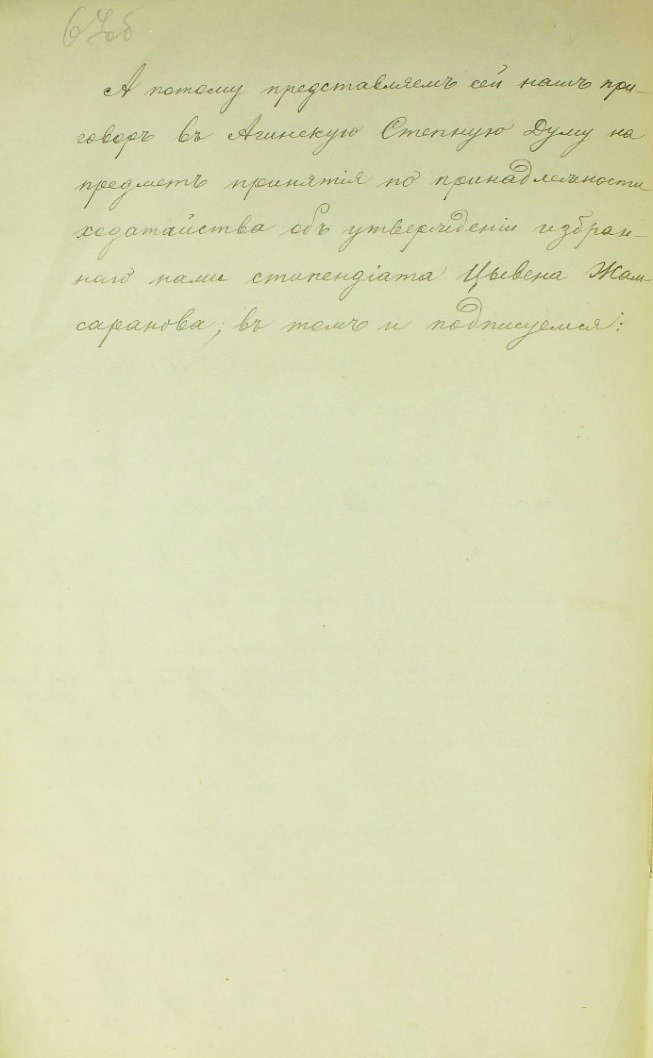 67об
А потому представляемъ сей нашъ при-
говоръ въ Агинскую Степную Думу на
предметъ принятія по принадлежности
ходатайства объ утвержденіи избран-
наго нами стипендіата Цывена Жам-
саранова, въ томъ и подписуемся: